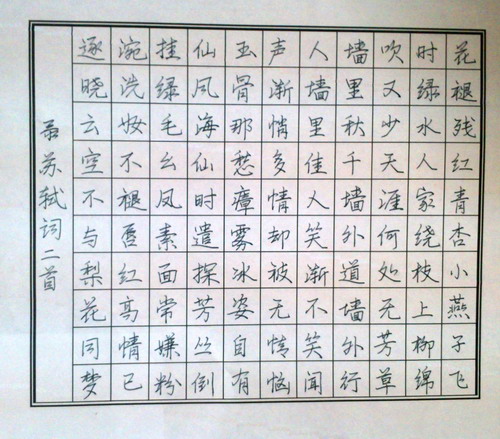 花褪残红青杏小燕子飞
时绿水人家绕枝上柳绵
吹又少天涯何处无芳草
墙里秋千墙外道墙外行
人墙里佳人笑渐不笑闻
声渐情多情却被无情恼
玉骨那愁瘴雾冰姿自有
仙风海仙时遣探芳丛倒
挂绿毛幺凤素面常嫌粉
涴洗妆不褪唇红高情已
逐晓云空不与梨花同梦
苏轼词二首